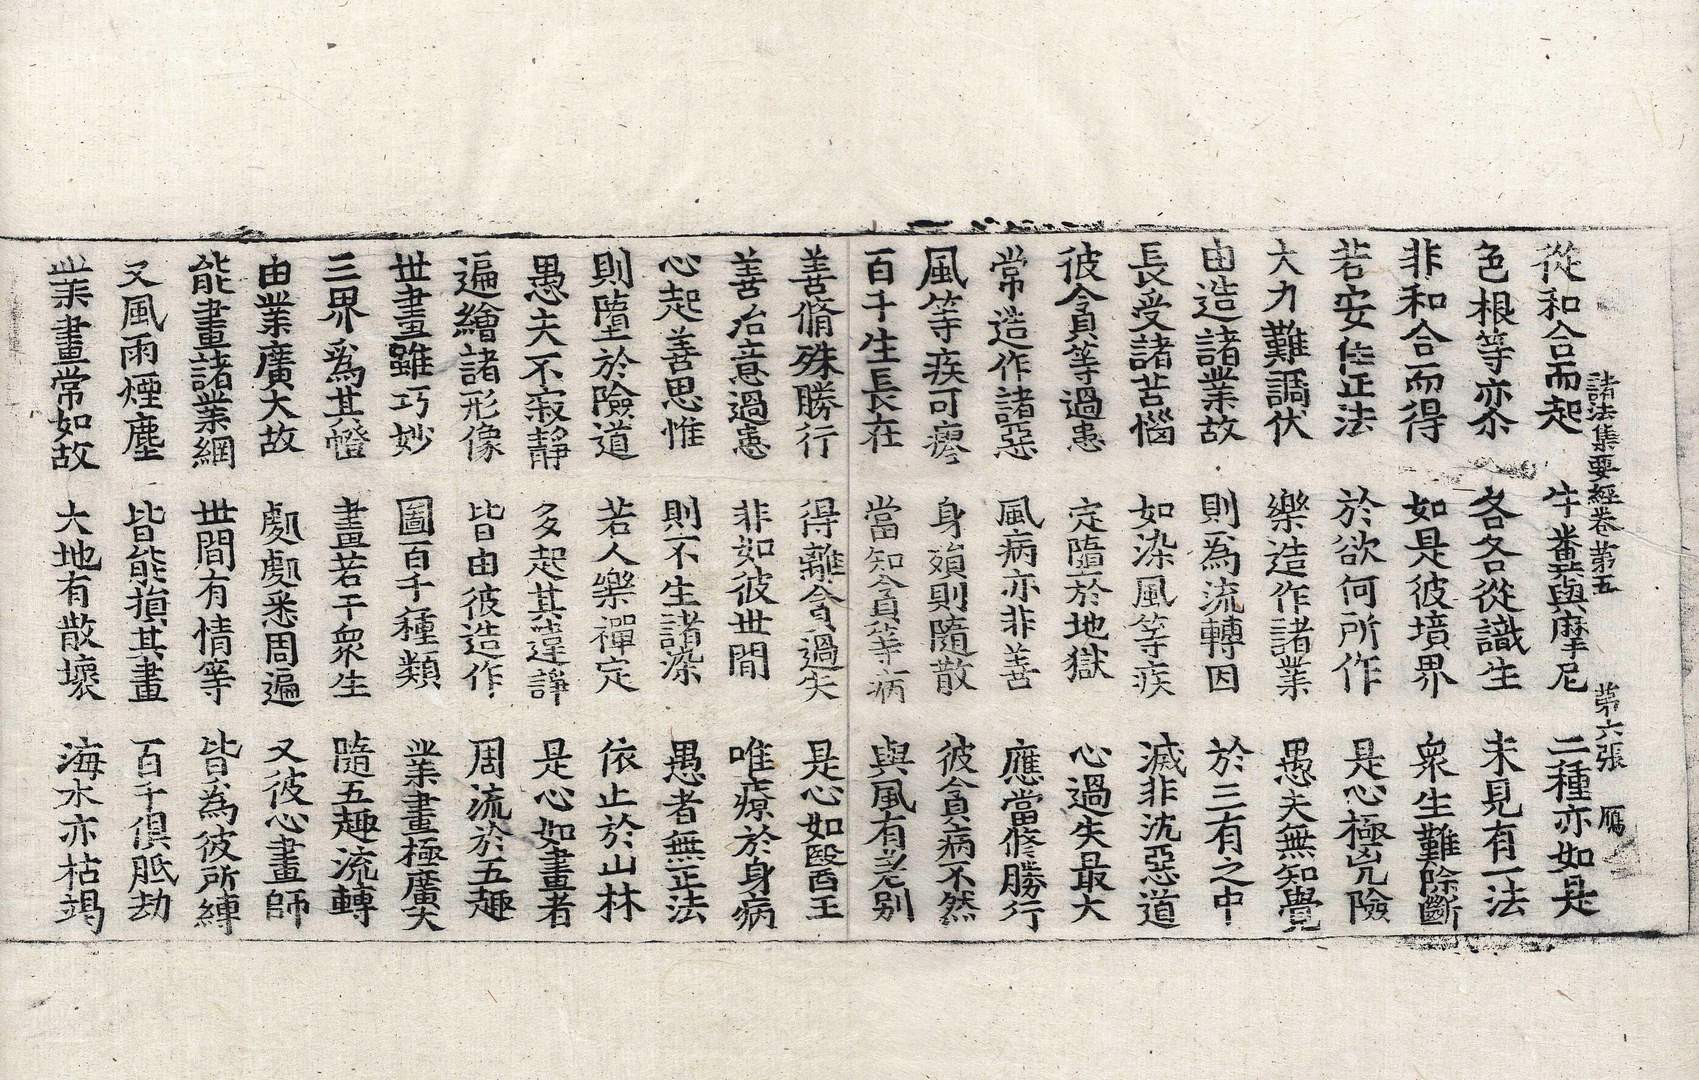 諸法集要經卷第五 第六張 鴈
從和合而起 牛糞與摩尼 二種亦如是
色根等亦尒 各各從識生 未見有一法
非和合而得 如是彼境界 衆生難除斷
若安住正法 於欲何所作 是心極㓙險
大力難調伏 樂造作諸業 愚夫無知覺
由造諸業故 則爲流轉因 於三有之中
長受諸苦惱 如染風等疾 滅非沈惡道
彼貪等過患 定墮於地獄 心過失最大
常造作諸惡 風病亦非善 應當修勝行
風等疾可瘳 身殞則隨散 彼貪病不然
百千生長在 當知貪等病 與風有差别
善脩殊勝行 得離貪過失 是心如毉王
善治意過患 非如彼世間 唯療於身病
心起善思惟 則不生諸染 愚者無正法
則墮於險道 若人樂禪定 依止於山林
愚夫不寂静 多起其違諍 是心如畫者
遍繪諸形像 皆由彼造作 周流於五趣
世畫雖巧妙 圖百千種類 業畫極廣大
三界爲其㡧 畫若干衆生 隨五趣流轉
由業廣大故 處處悉周遍 又彼心畫師
能畫諸業網 世間有情等 皆為彼所縛
又風雨煙塵 皆能損其畫 百千俱胝劫
業畫常如故 大地有散壞 海水亦枯竭